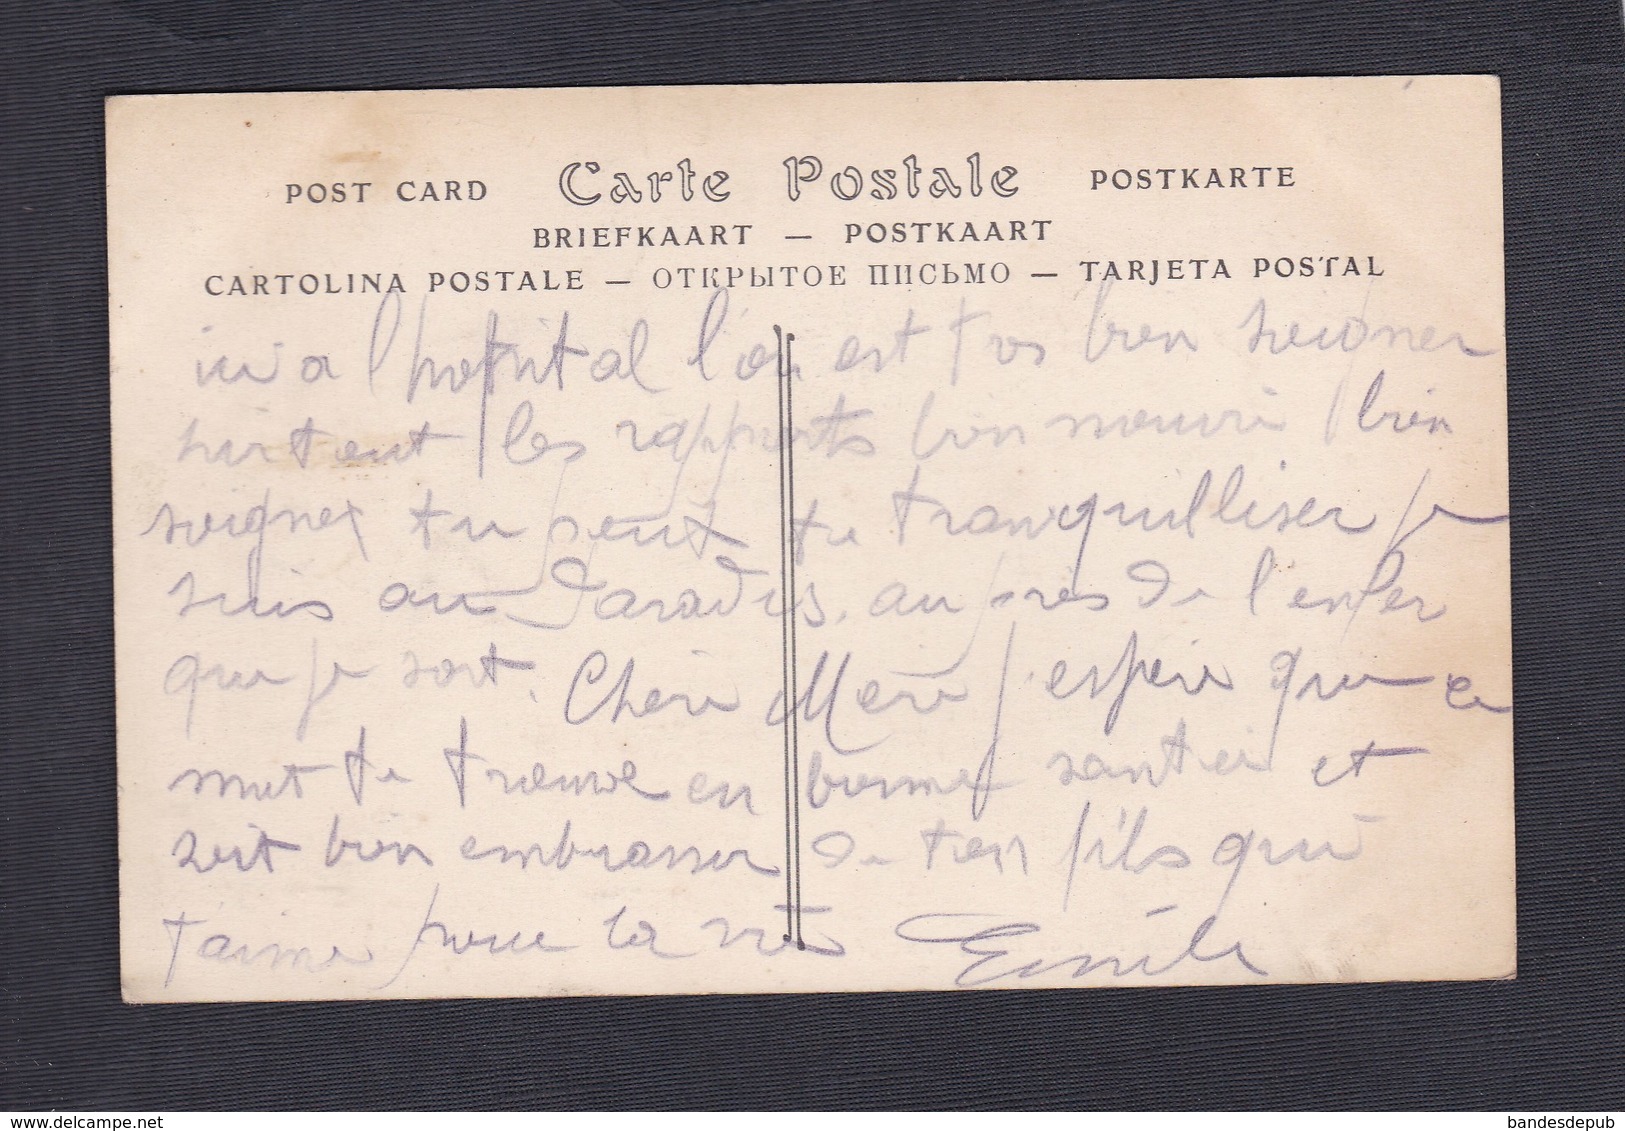 POST CARD Carte Postale POSTKARTE
BRIEFKAART — POSTKAART
CARTOLINA POSTALE — ОТКРЫТОЕ ПИСЬМО — TARJETA POSTAL
ici a l'hopital l'on est trs bien soigner
surtout les rapports bon nourri bien
soigner tu peut te tranquilliser je
suis au Paradis. aupres de l'enfer
que je sort. Cheri Meri j'esperi que ce
mot te trouve en bonne santei et
soit bien embrasser de ton fils qui
t'aime pour la vie Emile
delcampe.net
bandesdepub